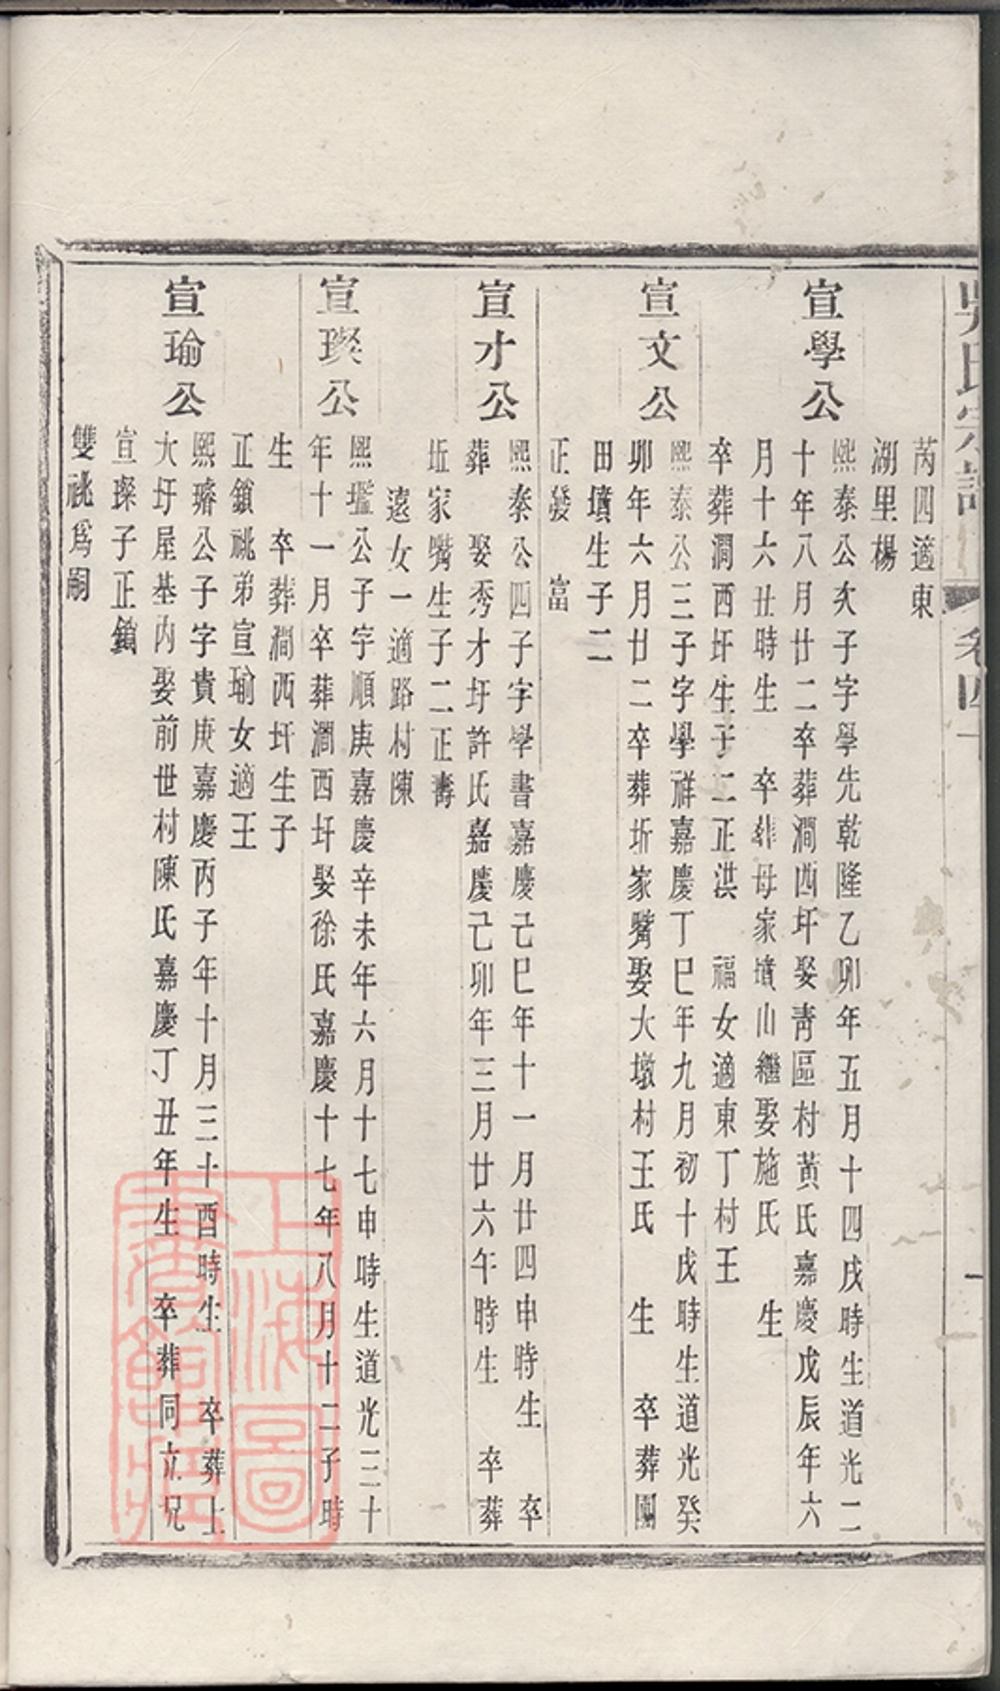 吳氏宗譜
卷四十
芮四適東
湖里楊
宣學公
熙泰公次子字學先乾隆乙卯年五月十四戌時生道光二
十年八月廿二卒葬澗西圩娶青區村黃氏嘉慶戊辰年六
月十六丑時生 卒葬母家墳山繼娶施氏 生
卒葬澗西圩生子二正洪 福女適東丁村王
宣文公
熙泰公三子字學祥嘉慶丁巳年九月初十戌時生道光癸
卯年六月廿二卒葬圻家嘴娶大墩村王氏 生 卒葬團
田墳生子二
正發 富
宣才公
熙泰公四子字學書嘉慶己巳年十一月廿四申時生 卒
葬 娶秀才圩許氏嘉慶己卯年三月廿六午時生 卒葬
坵家嘴生子二正壽
遠女一適路村陳
宣璨公
熙瓛公子字順庚嘉慶辛未年六月十七申時生道光三十
年十一月卒葬澗西圩娶徐氏嘉慶十七年八月十二子時
生 卒葬澗西圩生子
正鎖祧弟宣瑜女適王
宣瑜公
熙璿公子字貴庚嘉慶丙子年十月三十酉時生 卒葬上
大圩屋基內娶前世村陳氏嘉慶丁丑年生 卒葬同立兄
宣璨子正鎖
雙祧爲嗣
上海圖
書館藏